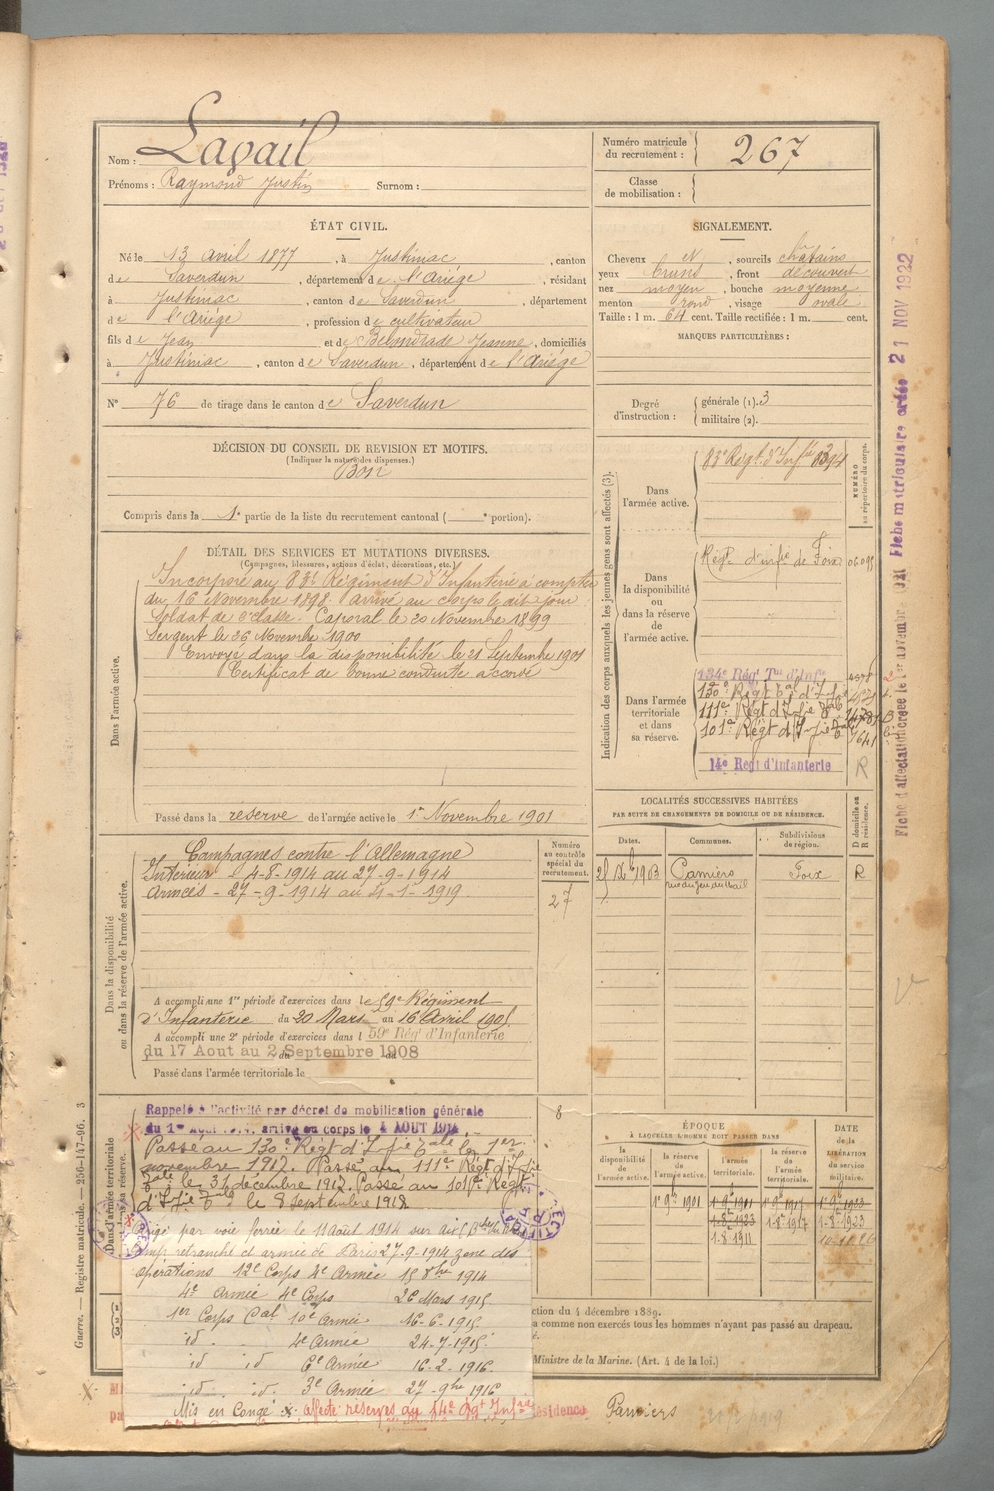 Nom : Lagail
Prénoms : Raymond Justin Surnom :
Numéro matricule du recrutement : 267
Classe de mobilisation :
ÉTAT CIVIL.
Né le 13 avril 1877, à Justiniac, canton
de Saverdun, département de l'Ariège, résidant
à Justiniac, canton de Saverdun, département
de l'Ariège, profession de cultivateur
fils de Jean et de Belondrade Jeanne, domiciliés
à Justiniac, canton de Saverdun, département de l'Ariège
N° 76 de tirage dans le canton de Saverdun
SIGNALEMENT.
Cheveux et, sourcils châtains
yeux bruns, front découvert
nez moyen, bouche moyenne
menton rond, visage ovale
Taille : 1 m. 64 cent. Taille rectifiée : 1 m. cent.
MARQUES PARTICULIÈRES :
Degré d'instruction : générale (1). 3
militaire (2).
DÉCISION DU CONSEIL DE REVISION ET MOTIFS.
(Indiquer la nature des dispenses.)
Bon
Compris dans la 1e partie de la liste du recrutement cantonal ( e portion).
DÉTAIL DES SERVICES ET MUTATIONS DIVERSES.
(Campagnes, blessures, actions d'éclat, décorations, etc.)
Dans l'armée active.
Incorporé au 83e Régiment d'Infanterie à compter
du 16 Novembre 1898. arrivé au corps le dit jour
Soldat de 2e classe. Caporal le 20 Novembre 1899
Sergent le 26 Novembre 1900
Envoyé dans la disponibilité le 21 Septembre 1901
Certificat de bonne conduite accordé
Passé dans la réserve de l'armée active le 1er Novembre 1901
Indication des corps auxquels les jeunes gens sont affectés (3).
NUMÉRO au répertoire du corps.
Dans l'armée active. 83e Régt. d'Infie
Dans la disponibilité ou dans la réserve de l'armée active. Régt. d'infie de Foix
Dans l'armée territoriale et dans sa réserve. 134e Régt Tal d'Infie
130e Régt Tal d'Infie
111e Régt d'Infie Tale
101e Régt d'Infie Tale
14e Régt d'Infanterie R
LOCALITÉS SUCCESSIVES HABITÉES
PAR SUITE DE CHANGEMENTS DE DOMICILE OU DE RÉSIDENCE.
Dates. Communes. Subdivisions de région. D domicile ou R résidence.
1903 Pamiers Foix R
Dans la disponibilité ou dans la réserve de l'armée active.
Numéro au contrôle spécial du recrutement.
27
Campagnes contre l'Allemagne
Intérieur 4-8-1914 au 27-9-1914
Armées - 27-9-1914 au 4-1-1919
A accompli une 1re période d'exercices dans le 59e Régiment
d'Infanterie du 20 Mars au 16 Avril 1905
A accompli une 2e période d'exercices dans l 59e Régt d'Infanterie
du 17 Aout au 2 Septembre 1908
Passé dans l'armée territoriale le
Dans l'armée territoriale et dans sa réserve.
Rappelé à l'activité par décret de mobilisation générale
du 1er Aout 1914, arrivé au corps le 4 AOUT 1914
Passé au 130e Régt d'Infie Tale le 1er
novembre 1917. Passé au 111e Régt d'Infie
Tale le 31 décembre 1917. Passé au 101e Régt
d'Infie Tale le 8 septembre 1918
8
Dirigé par voie ferrée le 11 Août 1914 sur
camp retranché et armée de Paris 27-9-1914 zone des
opérations 12e Corps 4e Armée 15 8bre 1914
4e Armée 4e Corps 26 Mars 1915
1er Corps Cal 10e Armée 16-6-1915
id 4e Armée 24-7-1915
id id 6e Armée 16-2-1916
id. id. 3e Armée 27-9bre 1916
Mis en Congé affecté réserves du 14e Régt Infie
résidence Pamiers
ÉPOQUE
À LAQUELLE L'HOMME DOIT PASSER DANS
la disponibilité de l'armée active. la réserve de l'armée active. l'armée territoriale. la réserve de l'armée territoriale.
DATE de la LIBÉRATION du service militaire.
1er 9bre 1901
1-8-1911 1-8-1917 1-8-1923
ction du 4 décembre 1889.
a comme non exercés tous les hommes n'ayant pas passé au drapeau.
Ministre de la Marine. (Art. 4 de la loi.)
Guerre. — Registre matricule. — 256-147-96. 3
Fiche matriculaire créée 21 NOV 1922
Fiche d'affectation créée le 1er novembre